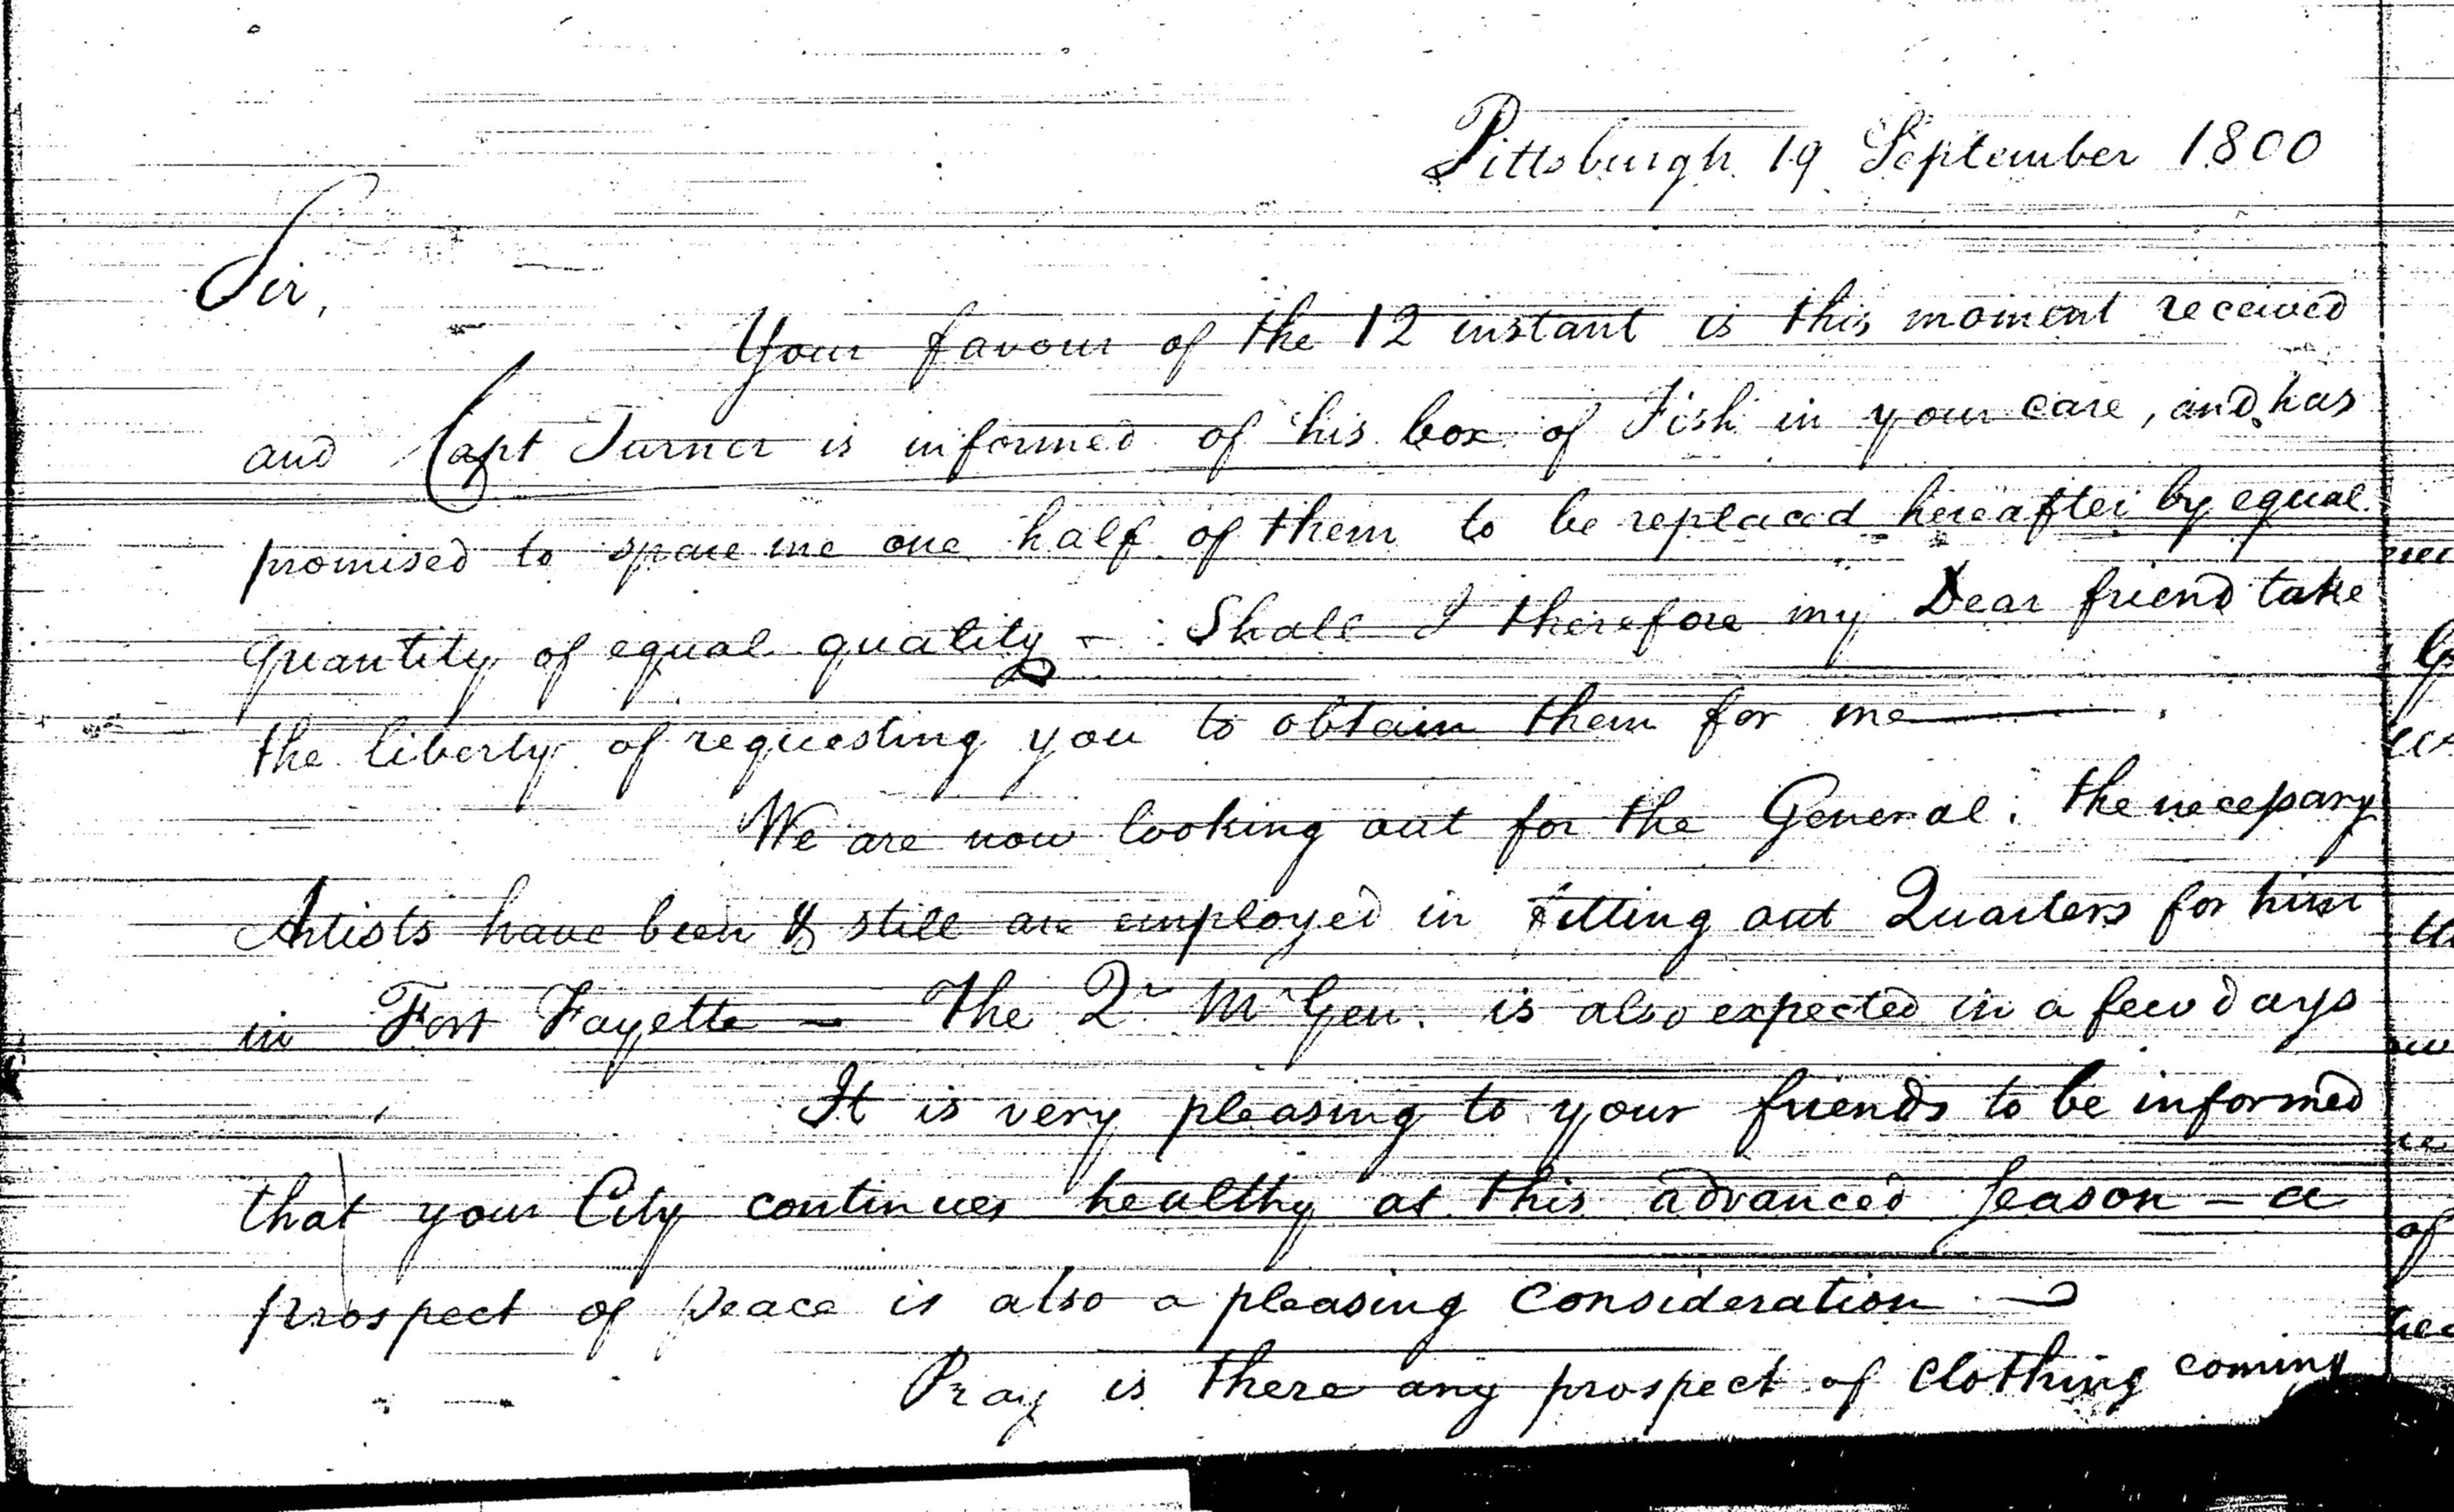 Pittsburgh 19 September 1800
Sir,
Your favour of the 12 instant is this moment received
and Capt Turner is informed of his box of Fish in your care, and has
promised to spare me one half of them to be replaced hereafter by equal
quantity of equal quality - Shall I therefore my Dear friend take
the liberty of requesting you to obtain them for me
We are now looking out for the General. the necessary
Artists have been & still are employed in fitting out Quarters for him
in Fort Fayette - The Qr Mr Gen. is also expected in a few days
It is very pleasing to your friends to be informed
that your City continues healthy at this advanced Season - a
prospect of peace is also a pleasing consideration -
Pray is there any prospect of clothing coming